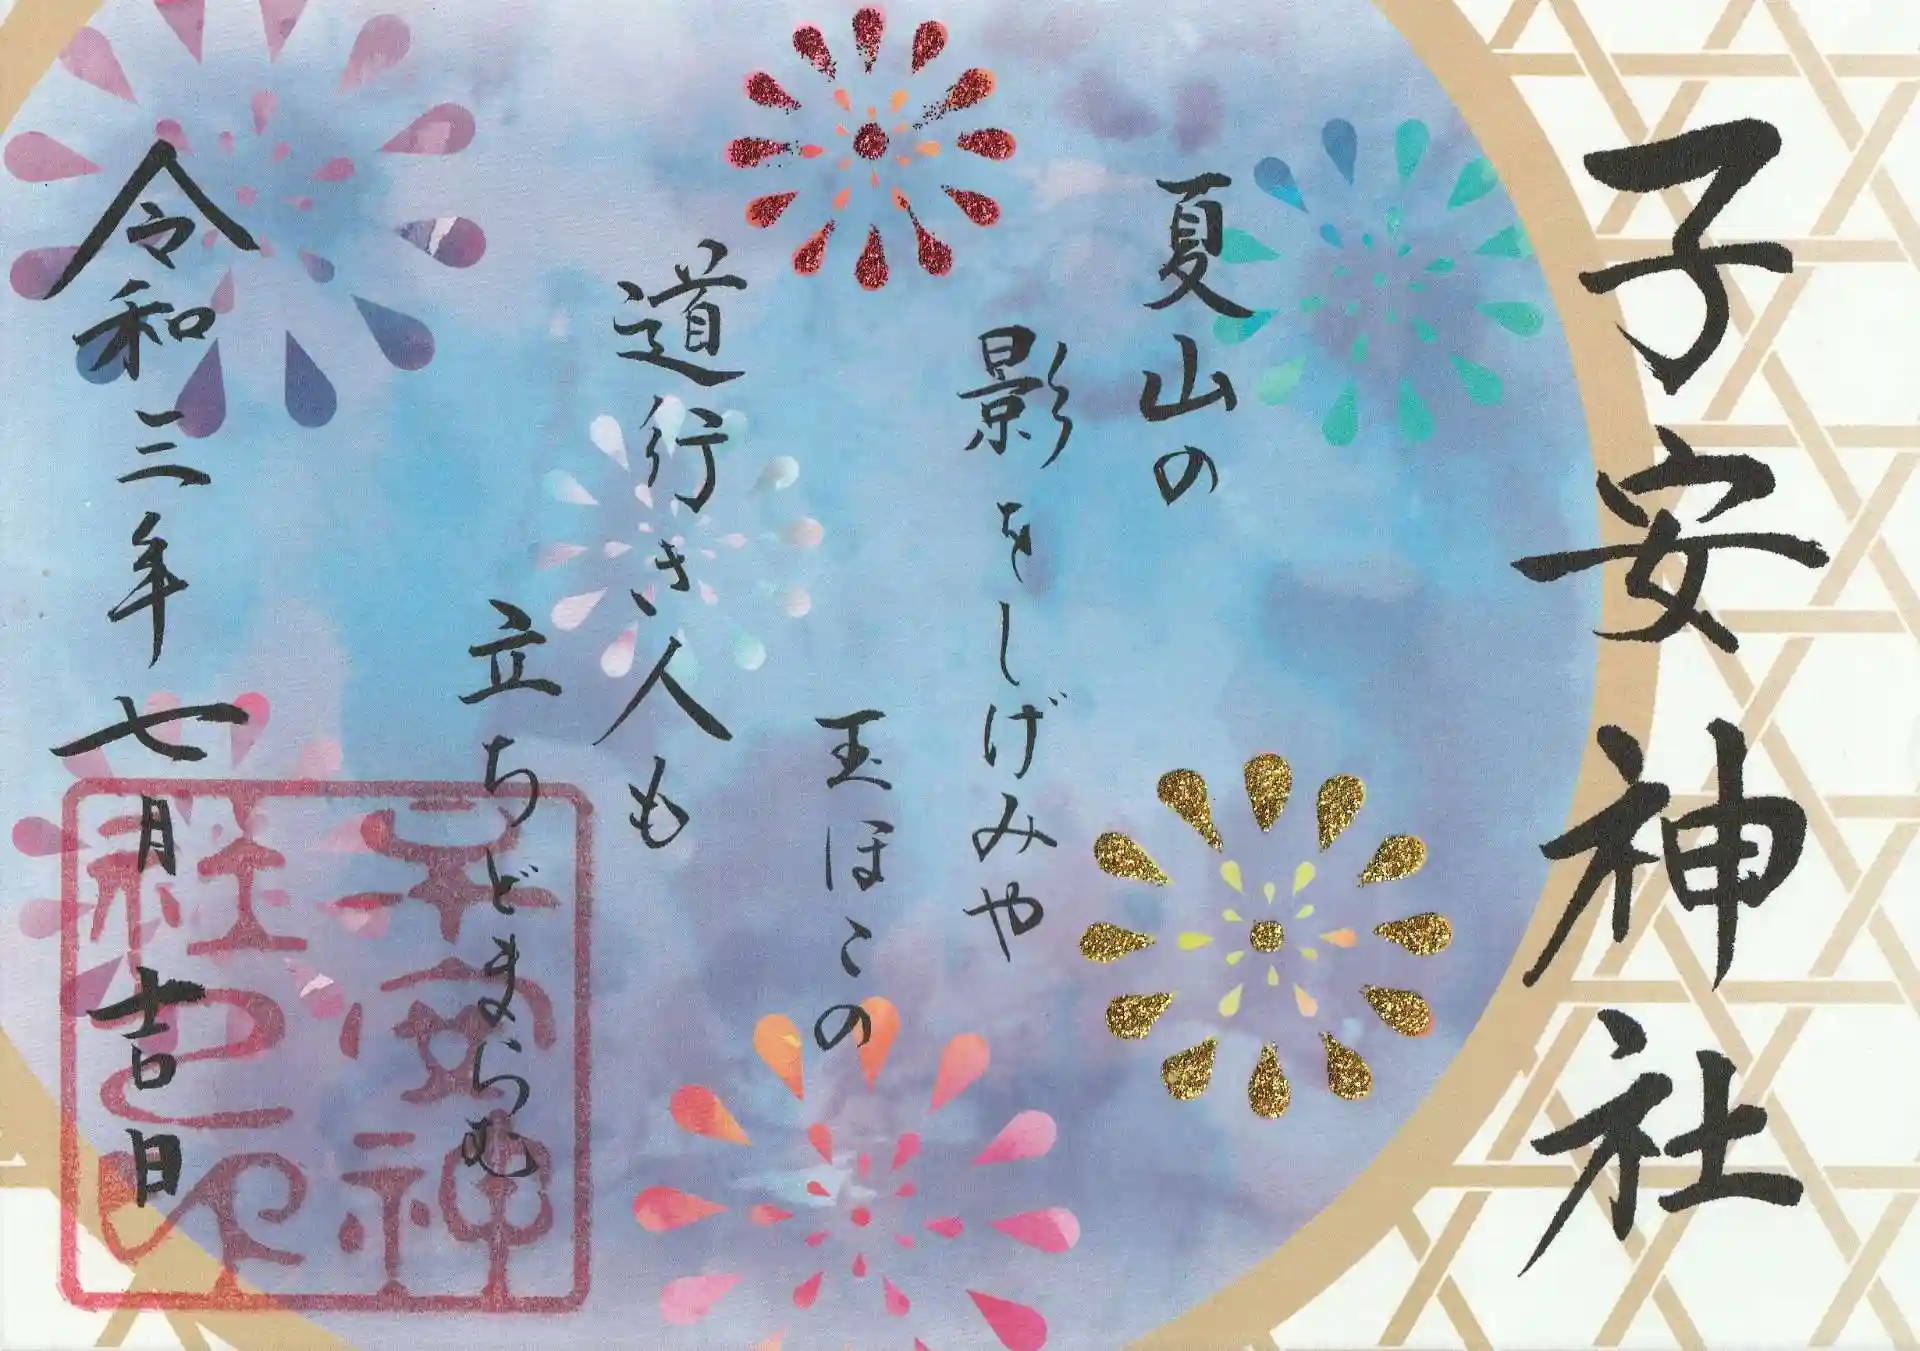 子安神社
夏山の
影をしげみや
玉ほこの
道行き人も
立ちどまらむ
令和三年七月吉日
子安神
社之印